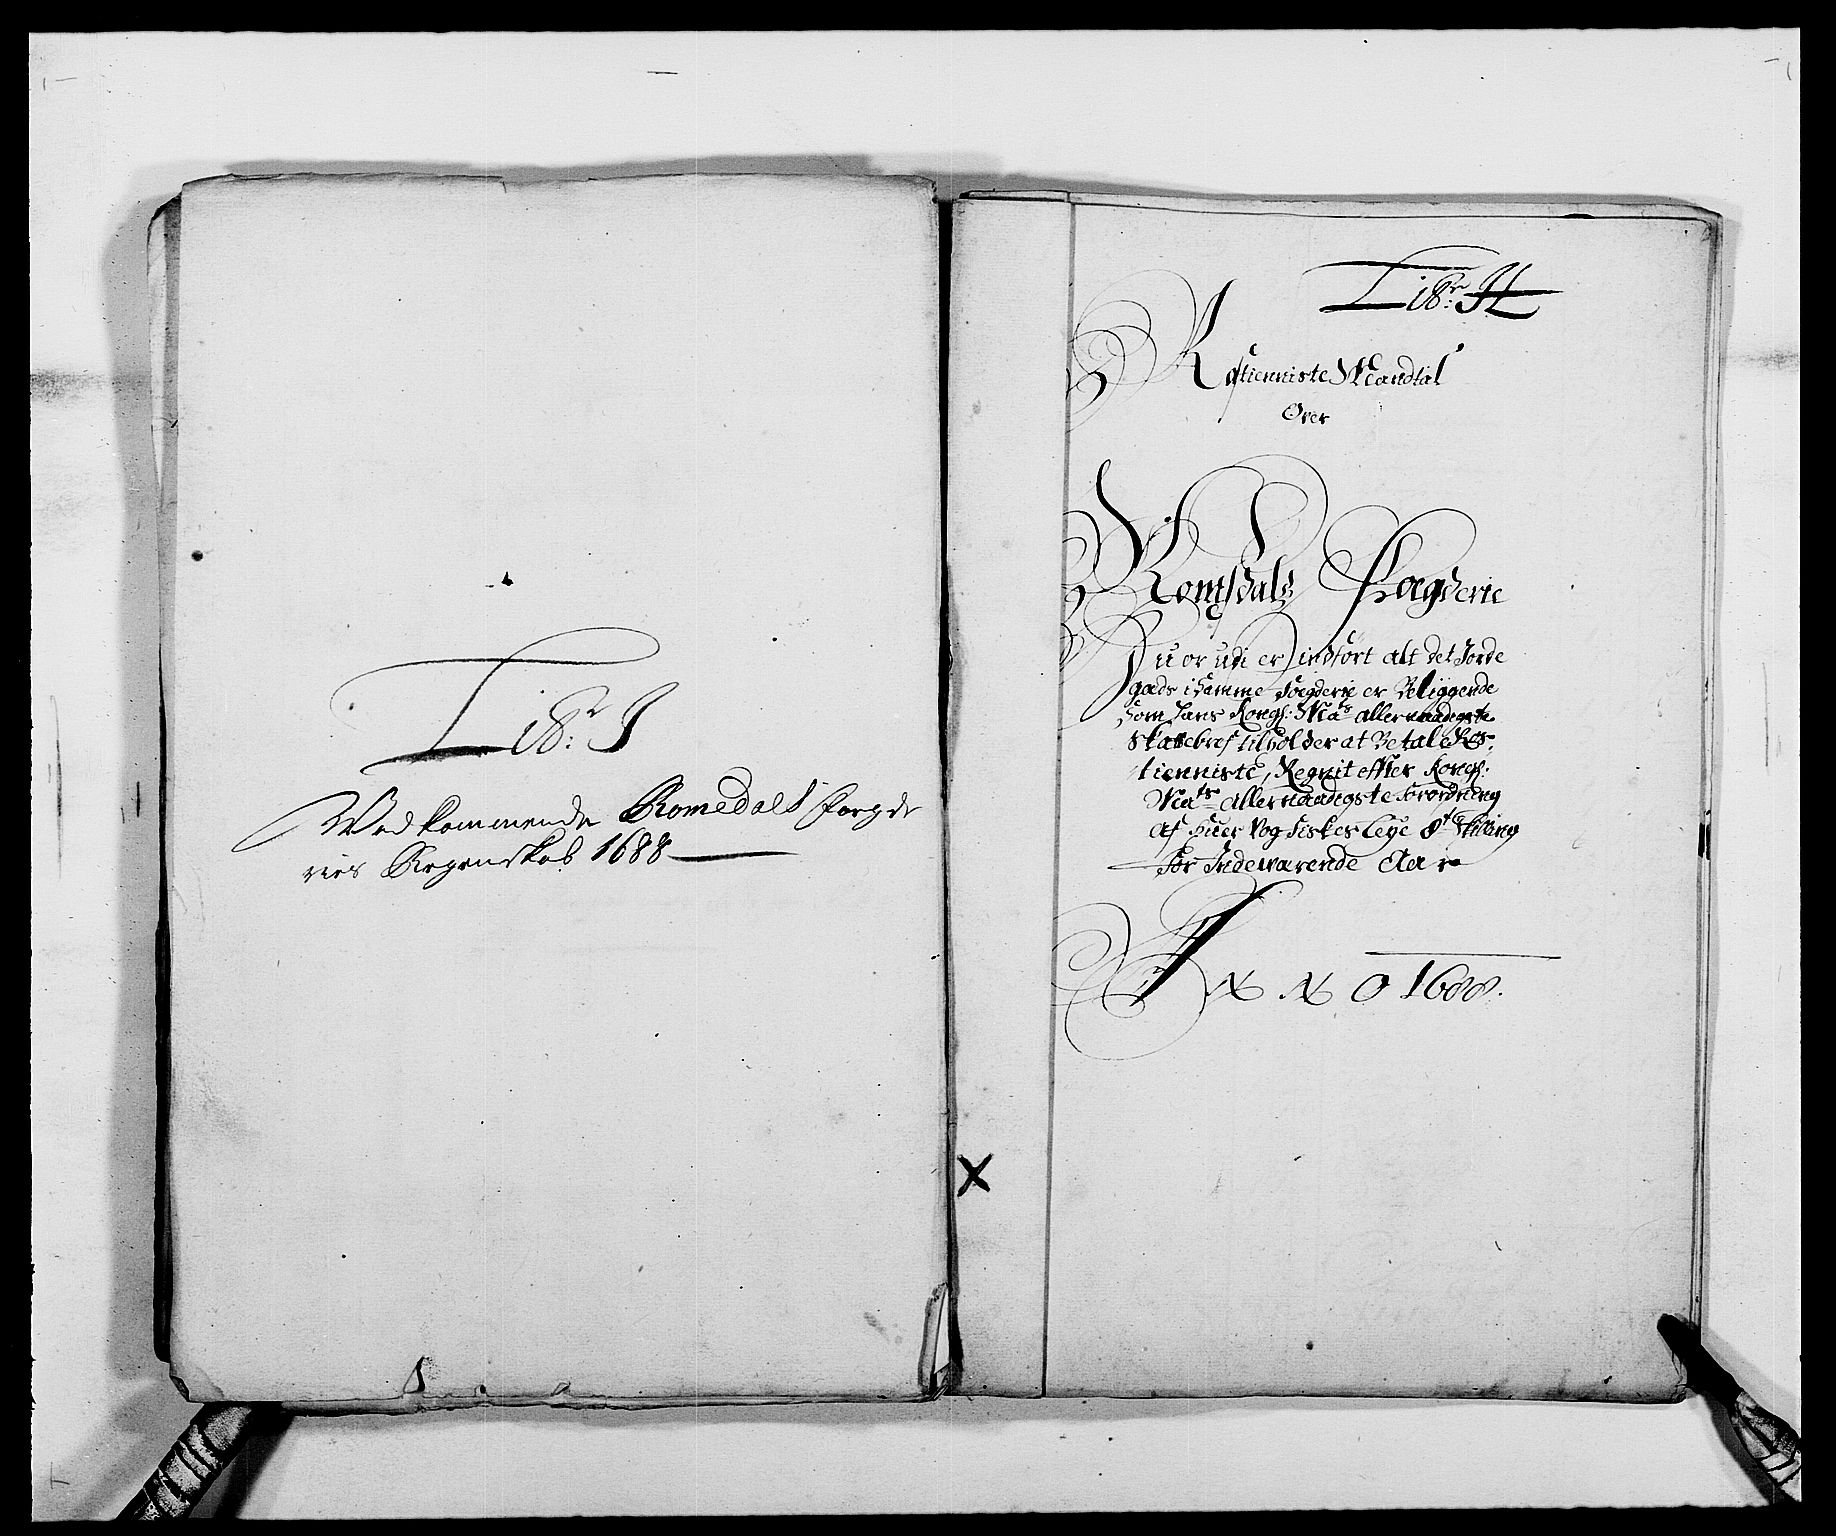 Litr: I
Vedkommende Romsdals fogde
ries Regenskab 1688
Litr: H
Rostienniste Mandtal
Over
Romsdals Fogderie
Huor udi er indført alt det Jorde
gods i samme fogderie er Beliggende
som hans Kongl: Mats allernaadigste
Skattebref tilholder at Betale Ros
tienniste, Regnit efter Kongl:
Mats allernaadigste forordning
af huer Vog fiskes leye 8t skilling
for Indeværende Aar
ANNO 1688.
X